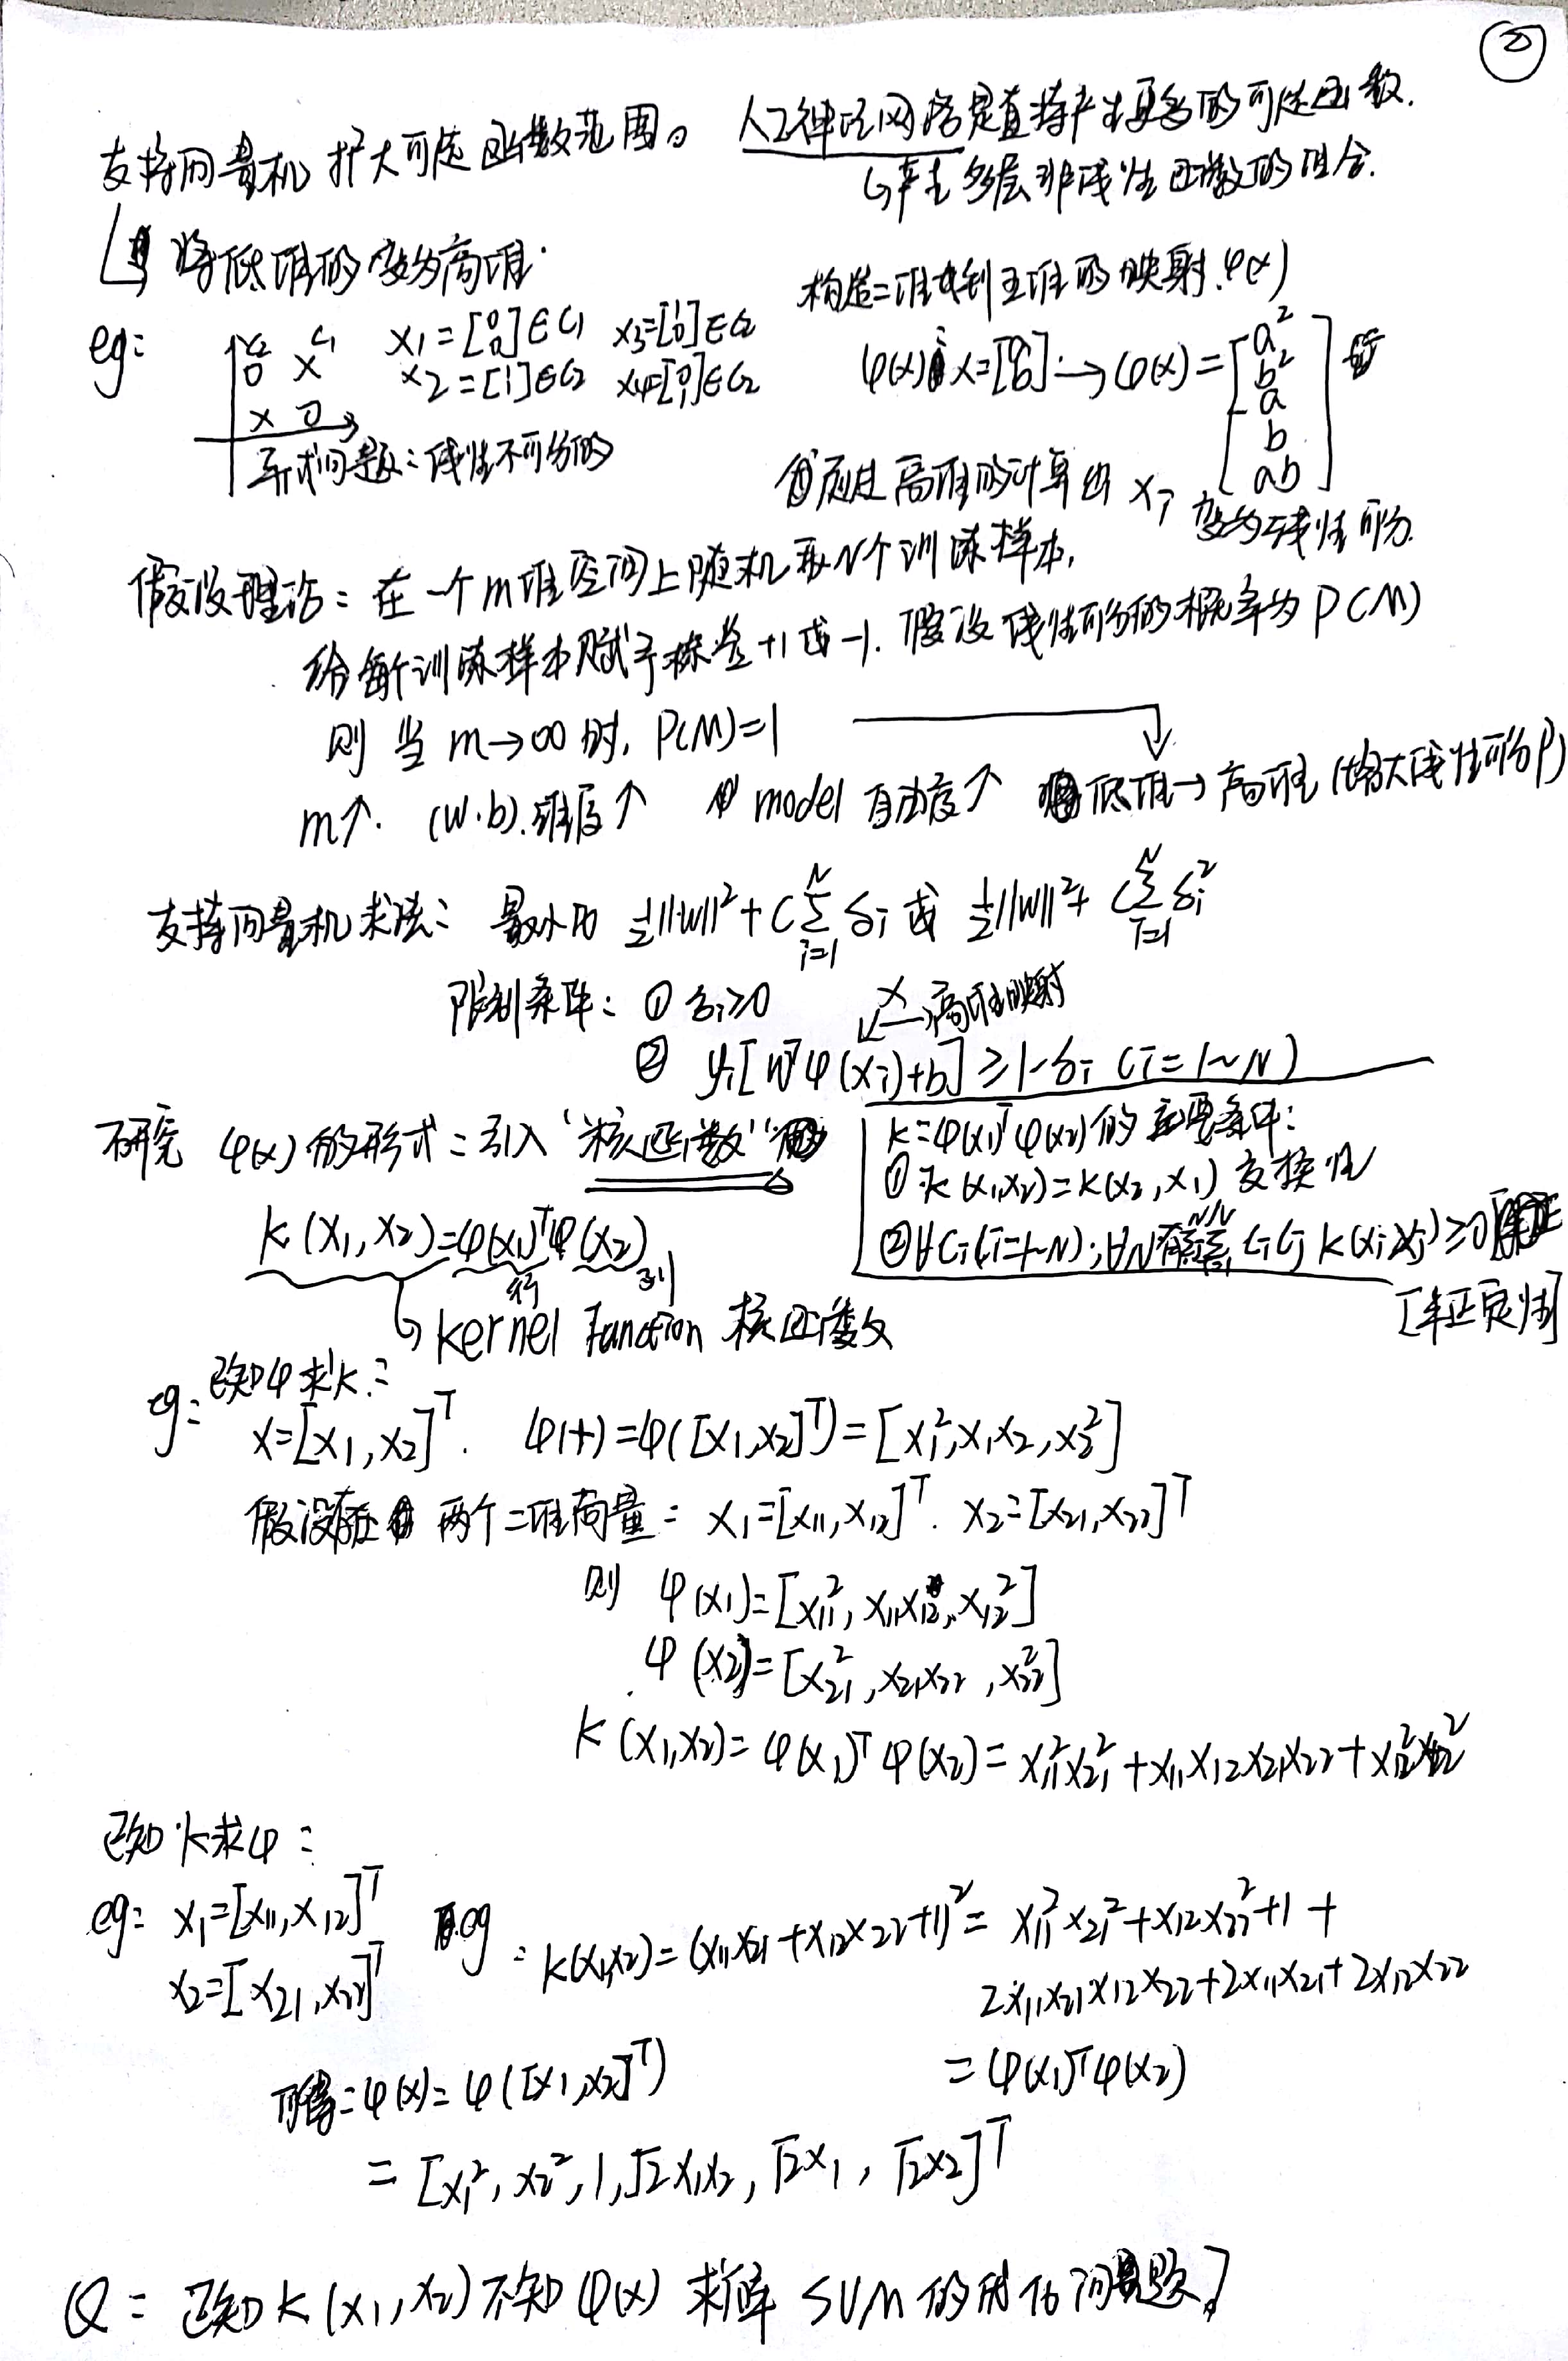 ②
支持向量机 扩大可选函数范围。 人工神经网络是直接产生更多的可选函数.
↳产生多层非线性函数的组合.
将低维的变为高维.
构造二维到五维的映射.φ(x)
eg: C2 C1 x1=[0 0]∈C1 x3=[1 0]∈C2
O X x2=[1 1]∈C2 x4=[0 1]∈C2
X O
φ(x) x=[a b]→φ(x)=[a² b² a b ab]
异或问题:线性不可分的
高维的计算出 xi 变为线性可分.
假设理论:在一个m维空间上随机取N个训练样本,
给每个训练样本赋予标签+1或-1.假设线性可分的概率为P(M)
则 当 m→∞ 时, P(M)=1
m↑. (W.b).维度↑ model 自由度↑ 低维→高维(增大线性可分P)
支持向量机求法: 最小的 ½||W||²+C∑_{i=1}^{N} δi 或 ½||W||²+C∑_{i=1}^{N} δi²
限制条件: ① δi≥0 x→高维映射
② yi[WTφ(xi)+b]≥1-δi (i=1~N)
研究 φ(x)的形式:引入"核函数"
K(x1,x2)=φ(x1)Tφ(x2)
行 列
K=φ(x1)Tφ(x2)的 条件:
①K(x1,x2)=K(x2,x1) 交换性
②∀Ci(i=1~N);∀N有∑_{i=1}^{N}∑_{j=1}^{N} CiCj K(xi,xj)≥0
[半正定性]
↳Kernel Function 核函数
eg: 已知φ求K:
x=[x1,x2]T. φ(x)=φ([x1,x2]T)=[x1²,x1x2,x2²]
假设存在 两个二维向量: x1=[x11,x12]T. x2=[x21,x22]T
则 φ(x1)=[x11², x11x12, x12²]
φ(x2)=[x21²,x21x22,x22²]
K(x1,x2)=φ(x1)Tφ(x2)=x11²x21²+x11x12x21x22+x12²x22²
已知K求φ:
eg: x1=[x11,x12]T
x2=[x21,x22]T
eg: K(x1,x2)=(x11x21+x12x22+1)²=x11²x21²+x12x22²+1+
2x11x21x12x22+2x11x21+2x12x22
=φ(x1)Tφ(x2)
可得:φ(x)=φ([x1,x2]T)
=[x1²,x2²,1,√2x1x2,√2x1,√2x2]T
Q: 已知K(x1,x2)不知φ(x) 求解 SVM的优化问题?